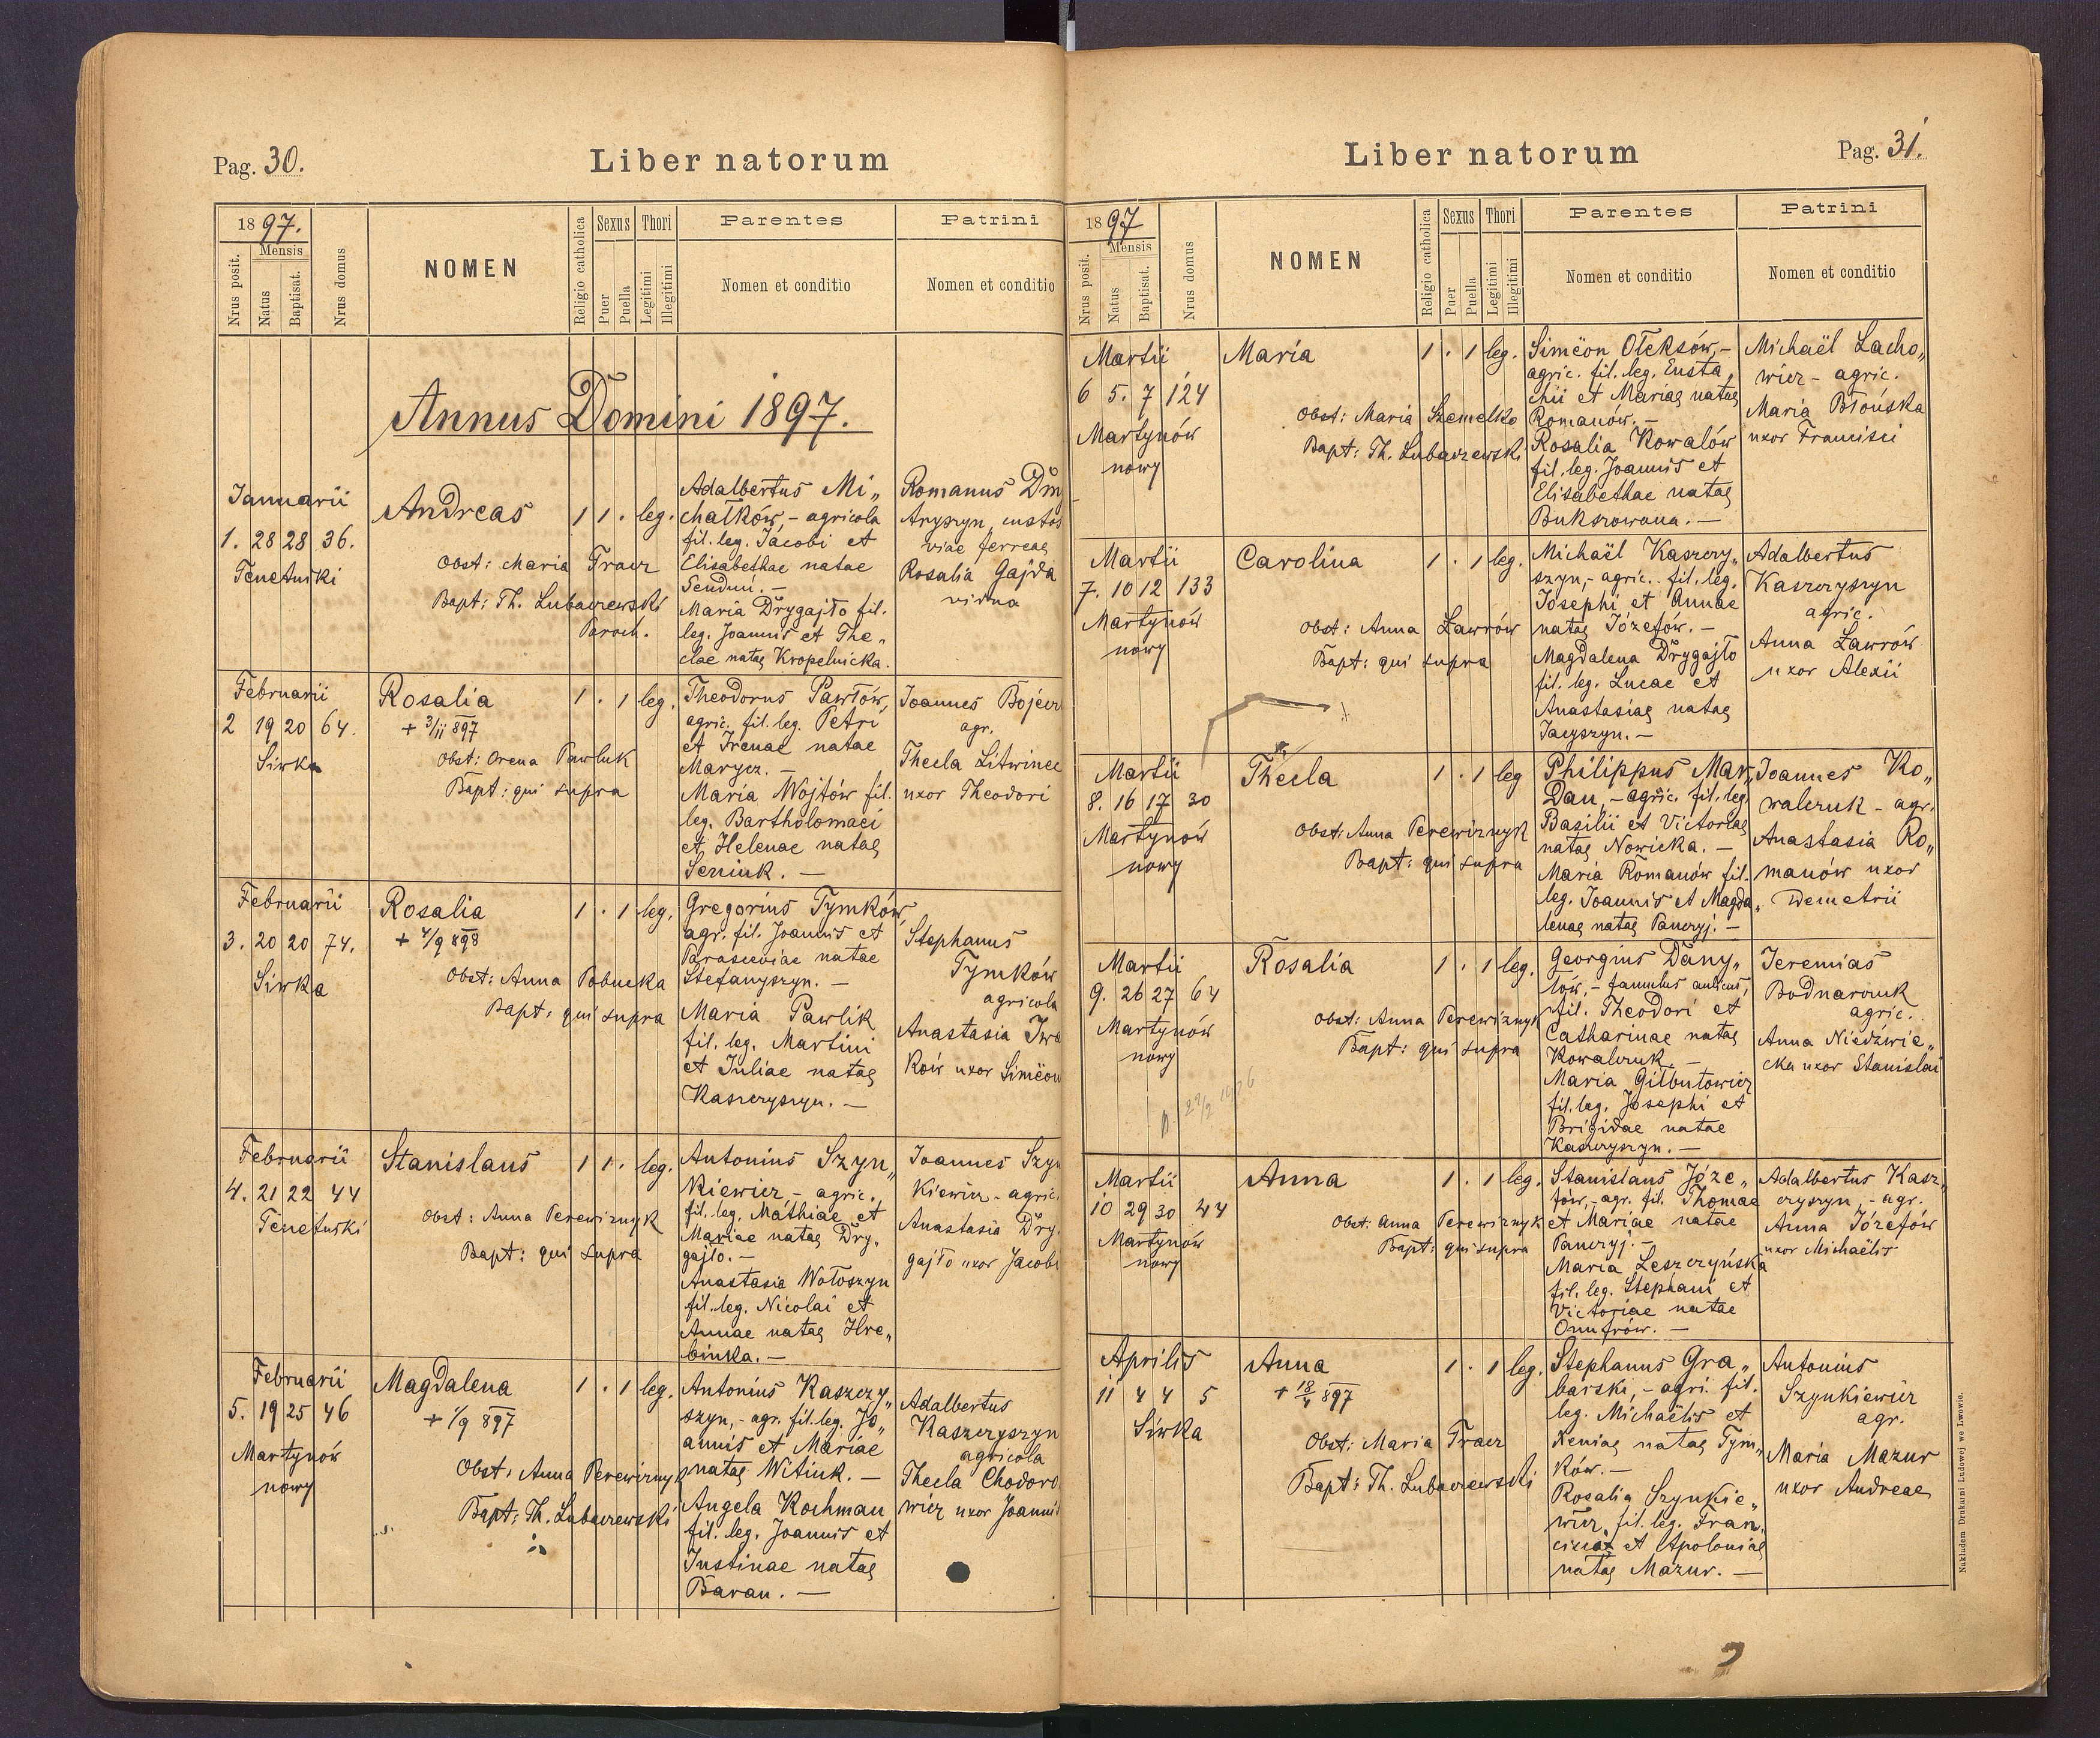 Pag. 30.
Liber natorum
1897.
Mensis
Nrus posit.
Natus
Baptisat.
Nrus domus
NOMEN
Religio catholica
Sexus
Puer
Puella
Thori
Legitimi
Illegitimi
Parentes
Nomen et conditio
Patrini
Nomen et conditio
Annus Domini 1897.
Januarii
1. 28 28 36.
Tenetniki
Andreas
Obst: Maria Tracz
Bapt: Th. Lubaczewski
Paroch.
1 1 . leg.
Adalbertus Mi„
chałków, - agricola
fil. leg. Jacobi et
Elisabethae natae
Senduń. —
Maria Drygajło fil.
leg. Joannis et The„
clae natae Kropelnicka.
Romanus Dm
Aryszyn, custos
viae ferreae
Rosalia Gajda
vidua
Februarii
2 19 20 64.
Siwka
Rosalia
+ 3/11 897
Obst: Orena Pawluk
Bapt: qui supra
1 . 1 leg.
Theodorus Pawłów,
agric. fil. leg. Petri
et Irenae natae
Marycz. —
Maria Wojtów fil.
leg. Bartholomaei
et Helenae natae
Seniuk. —
Joannes Bojecz
agr.
Thecla Litwinec
uxor Theodori
Februarii
3. 20 20 74.
Siwka
Rosalia
+ 4/9 898
Obst: Anna Pobucka
Bapt: qui supra
1 . 1 leg.
Gregorius Tymków,
agr. fil. Joannis et
Parasceviae natae
Stefanyszyn. —
Maria Pawlik
fil. leg. Martini
et Juliae natae
Kaszczyszyn. —
Stephanus
Tymków
agricola
Anastasia Iwa
ków uxor Simëon
Februarii
4. 21 22 44
Stanislaus
Obst: Anna Perewiznyk
Bapt: qui supra
1 1 . leg.
Antonius Szyn„
kiewicz, - agric.
fil. leg. Mathiae et
Mariae natae Dry„
gajło. —
Anastasia Wołoszyn
fil. leg. Nicolai et
Annae natae Hre„
binka. —
Joannes Szyn
kiewicz - agric.
Anastasia Dry„
gajło uxor Jacobi
Februarii
5. 19 25 46
Martynów
nowy
Magdalena
+ 1/9 897
Obst: Anna Perewiznyk
Bapt: Th. Lubaczewski
1 . 1 leg.
Antonius Kaszczy„
szyn, - agr. fil. leg. Jo„
annis et Mariae
natae Witiuk. —
Angela Kochman
fil. leg. Joannis et
Justinae natae
Baran. —
Adalbertus
Kaszczyszyn
agricola
Thecla Chodoro
wicz uxor Joannis
Liber natorum
Pag. 31.
1897
Mensis
Nrus posit.
Natus
Baptisat.
Nrus domus
NOMEN
Religio catholica
Sexus
Puer
Puella
Thori
Legitimi
Illegitimi
Parentes
Nomen et conditio
Patrini
Nomen et conditio
Martii
6 5. 7 124
Martynów
nowy
Maria
Obst: Maria Szemelko
Bapt: Th. Lubaczewski
1 . 1 leg.
Simëon Ołeksów, -
agric. fil. leg. Eusta„
chii et Mariae natae
Romanów. —
Rosalia Kowalów
fil. leg. Joannis et
Elisabethae natae
Bukszowana. —
Michaël Lacho„
wicz - agric.
Maria Błońska
uxor Francisci
Martii
7. 10 12 133
Martynów
nowy
Carolina
Obst: Anna Ławrów
Bapt: qui supra
1 . 1 leg.
Michaël Kaszczy„
szyn, - agric. fil. leg.
Josephi et Annae
natae Józefów. —
Magdalena Drygajło
fil. leg. Lucae et
Anastasiae natae
Jacyszyn. —
Adalbertus
Kaszczyszyn
agric.
Anna Ławrów
uxor Alexii
Martii
8. 16 17 30
Martynów
nowy
Thecla
Obst: Anna Perewiznyk
Bapt: qui supra
1 . 1 leg
Philippus Mar„
Dan, - agric. fil. leg.
Basilii et Victoriae
natae Nowicka. —
Maria Romanów fil.
leg. Joannis et Magda„
lenae natae Panczyj. —
Joannes Ko„
walczuk - agr.
Anastasia Ro„
manów uxor
Demetrii
Martii
9. 26 27 64
Martynów
nowy
Rosalia
Obst: Anna Perewiznyk
Bapt: qui supra
1 . 1 leg.
Georgius Dany„
łów, - famulus aulicus,
fil. Theodori et
Catharinae natae
Kowalczuk. —
Maria Gilbutowicz
fil. leg. Josephi et
Brigidae natae
Kaszczyszyn. —
Jeremias
Bodnarczuk
agric.
Anna Niedźwie„
cka uxor Stanislai
Martii
10 29 30 44
Martynów
nowy
Anna
Obst: Anna Perewiznyk
Bapt: qui supra
1 . 1 leg.
Stanislaus Józe„
fów, - agr. fil. Thomae
et Mariae natae
Panczyj. —
Maria Leszczyńska
fil. leg. Stephani et
Victoriae natae
Onufrów. —
Adalbertus Kasz„
czyszyn, - agr.
Anna Józefów
uxor Michaëlis
Aprilis
11 4 4 5
Siwka
Anna
+ 18/4 897
Obst: Maria Tracz
Bapt: Th. Lubaczewski
1 . 1 leg.
Stephanus Gra„
barski, - agri. fil.
leg. Michaëlis et
Xeniae natae Tym„
ków. —
Rosalia Szynkie„
wicz fil. leg. Fran„
cisci et Apoloniae
natae Mazur. —
Antonius
Szynkiewicz
agr.
Maria Mazur
uxor Andreae
Nakładem Drukarni Ludowej we Lwowie.